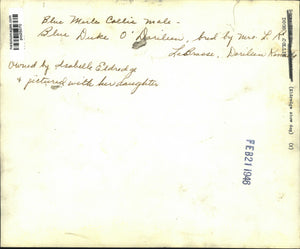 Blue Merle Collie Male -
Blue Duke O'Dorilien, bred by Mrs. L. R.
LeBrasse, Dorilien
Owned by Isabelle Eldredge
& pictured with her daughter
FEB 21 1946